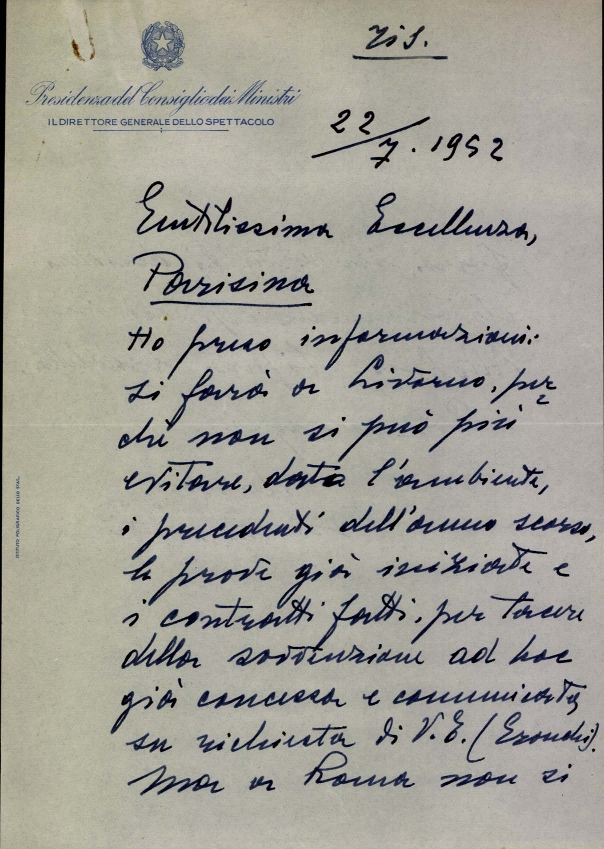 Presidenza del Consiglio dei Ministri
IL DIRETTORE GENERALE DELLO SPETTACOLO
ris.
22/7.1952
Gentilissima Eccellenza,
Parisina
Ho preso informazioni:
si farà a Livorno, per
chè non si può più
evitare, data l'ambiente,
i precedenti dell'anno scorso,
le prove già iniziate e
i contratti fatti, per tacere
della sovvenzione ad hoc
già concessa e comunicata
su richiesta di V.E.
Ma a Roma non si
ISTITUTO POLIGRAFICO DELLO STATO